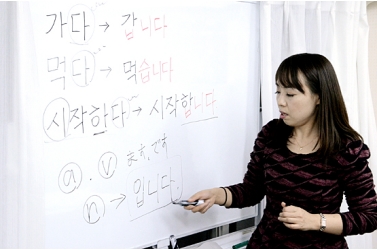 가다 → 갑니다
먹다 → 먹습니다
시작한다 → 시작합니다
a . v ます、です
n → 입니다.